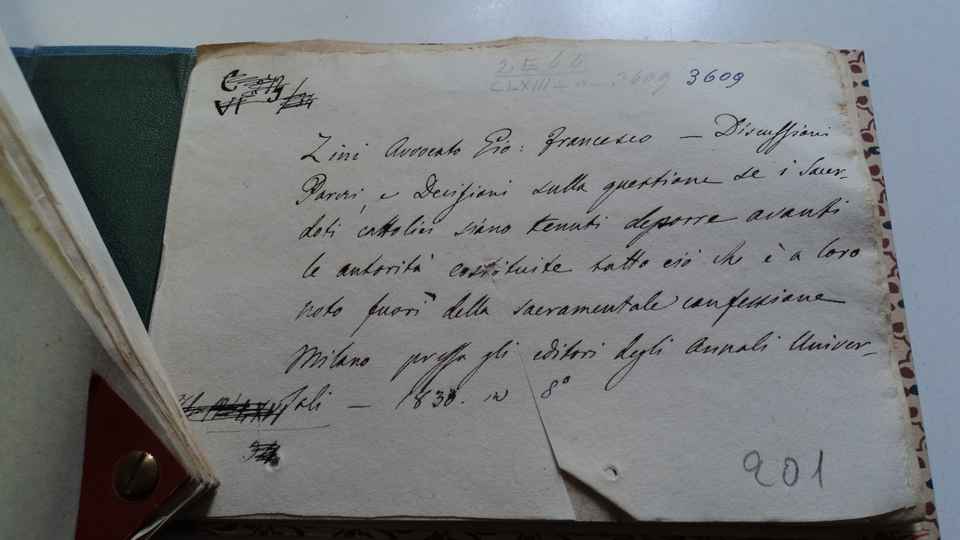 2 E 6 6
CLXIII 3609 3609
Zini Avvocato Gio: Francesco — Discussioni
Pareri, e Decisioni sulla questione se i Sacer-
doti cattolici siano tenuti deporre avanti
le autorità costituite tutto ciò che è a loro
noto fuori della sacramentale confessione
Milano presso gli editori degli Annali Univer-
sali — 1830. in 8°
201